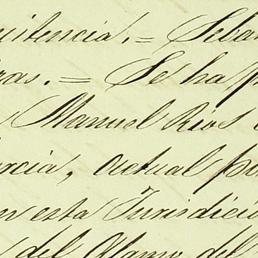 istencia. = Seba
ras. = Se ha p
Manuel Rios
rcia, actual p
n esta Jurisdicci
del Alamo del